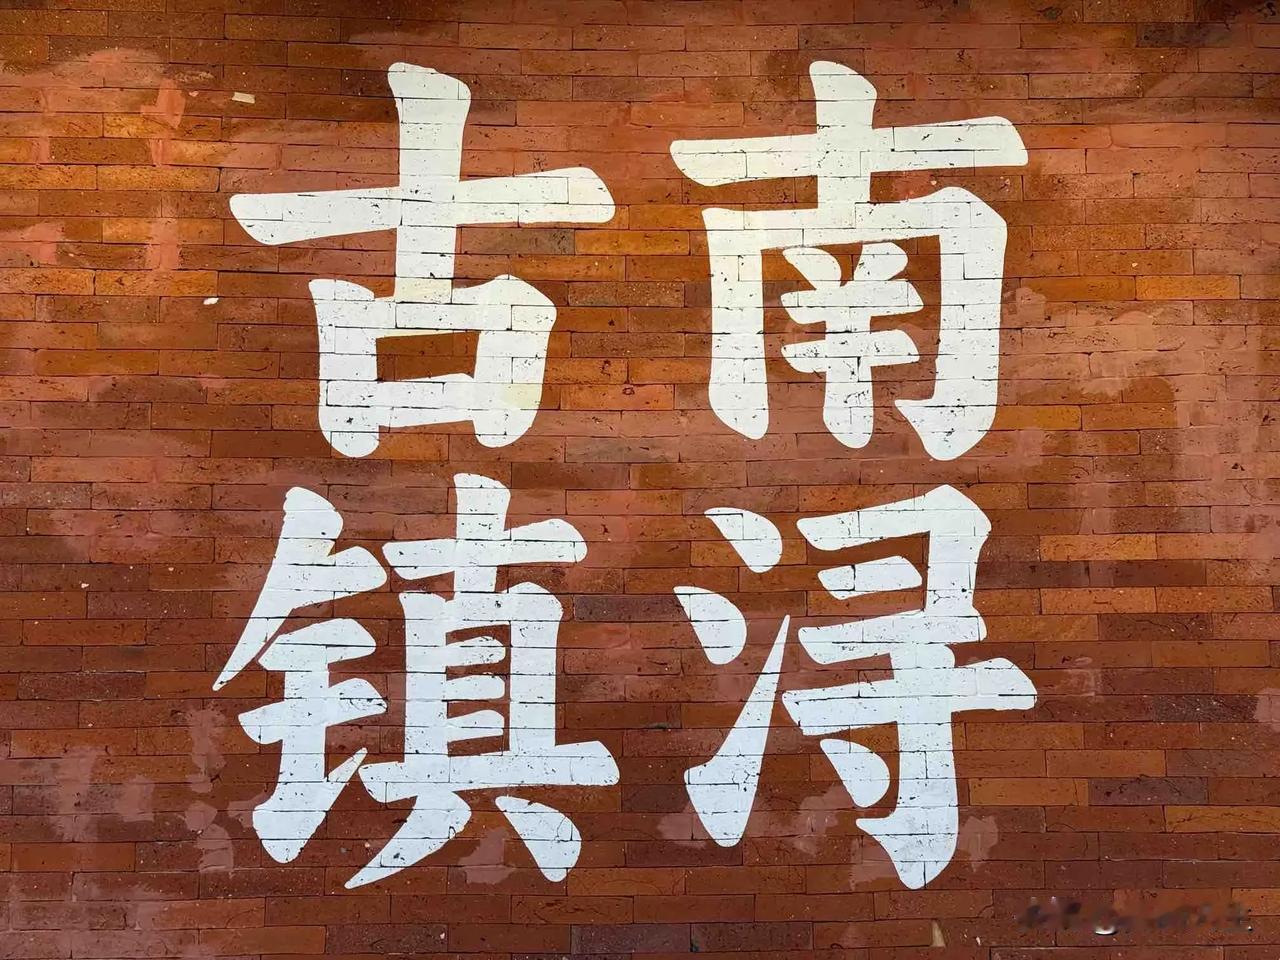 南浔
古镇